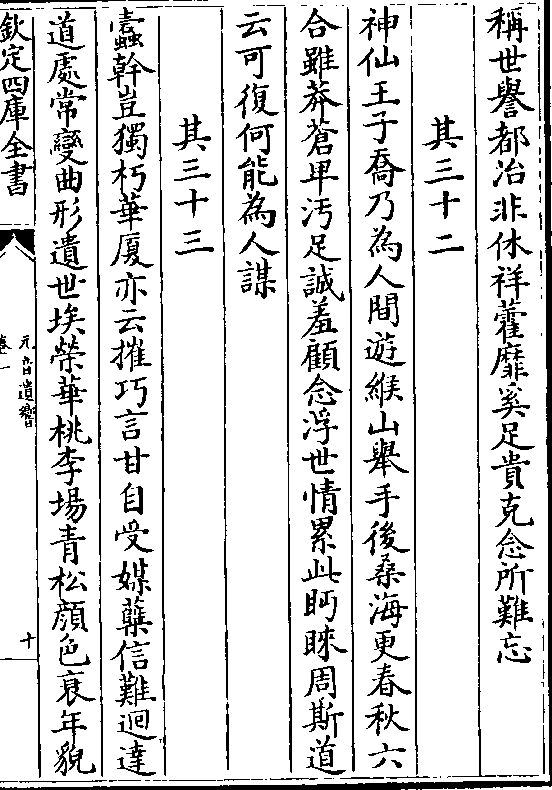 稱世譽都冶非休祥藿靡奚足貴克念所難忘
其三十二
神仙王子喬乃為人間遊緱山舉手後桑海更春秋六
合雖莽蒼卑汚足誠羞顧念浮世情累此眄睞周斯道
云可復何能為人謀
其三十三
蠧幹豈獨朽華厦亦云摧巧言甘自受媒蘖信難迴達
道處常變曲形遺世埃榮華桃李場青松顔色衰年貌
欽定四庫全書
元音遺響
卷一
十